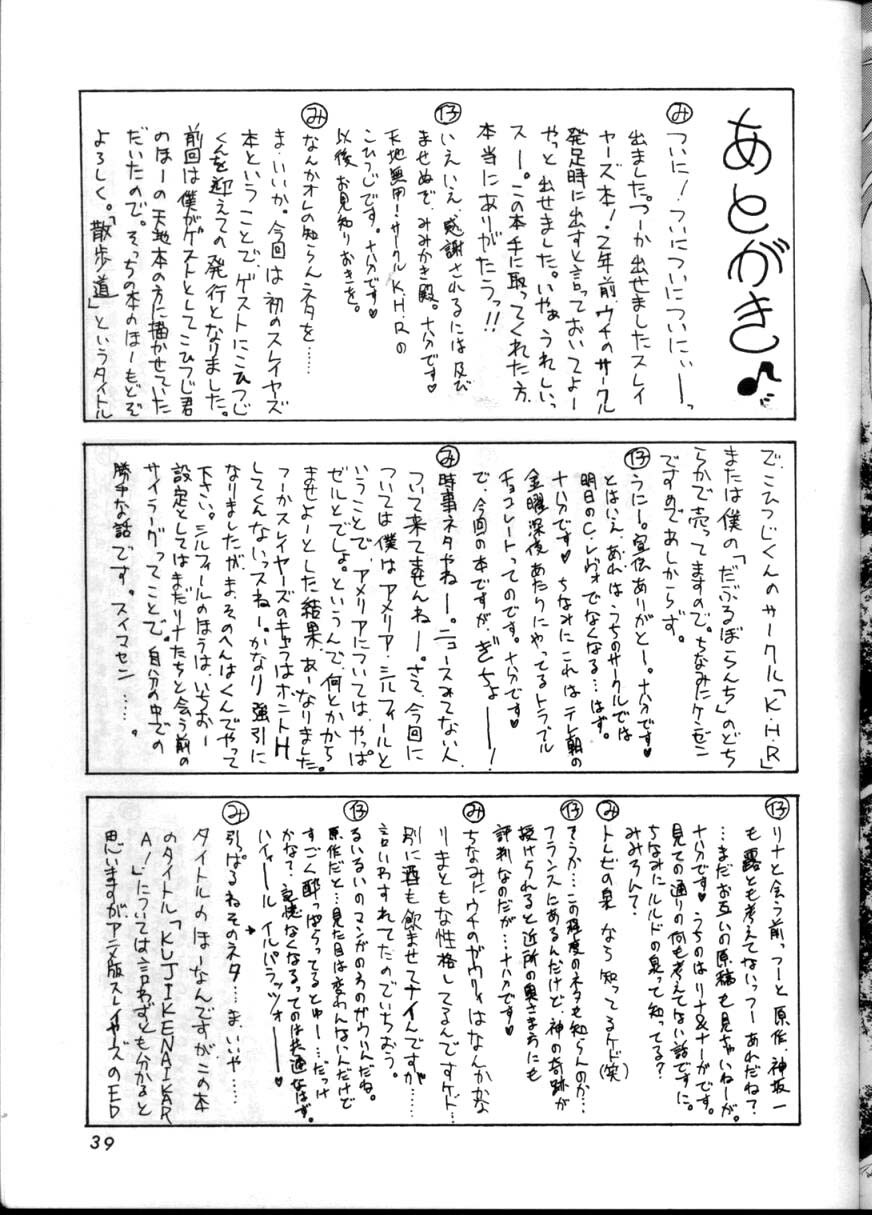 あとがき♪
み ついに！ついについについにぃーっ
出ました。つーか出せましたスレイ
ヤーズ本！2年前、ウチのサークル
発足時に出すと言っておいてよー
やっと出せました。いやぁ、うれしいっ
スー。この本手に取ってくれた方、
本当にありがたうっ!!
ひ いえいえ、感謝されるには及び
ませぬで、みみかき殿。十分です♥
天地無用！サークルK.H.Rの
こひつじです。十分です♥
以後、お見知りおきを。
み なんかオレの知らんネタを……
ま、いいか。今回は初のスレイヤーズ
本ということで、ゲストにこひつじ
くんを迎えての発行となりました。
前回は僕がゲストとしてこひつじ君
のほーの天地本の方に描かせていた
だいたので。そっちの本のほーもどぞ
よろしく。「散歩道」というタイトル
で、こひつじくんのサークル「K・H・R」
または僕の「だぶるぼらんち」のどち
らかで売ってますので。ちなみにケンゼン
ですのであしからず。
ひ うにー。宣伝ありがとー。十分です♥
とはいえ、あれはうちのサークルでは
明日のC.レヴォでなくなる…はず。
十分です♥ ちなみにこれはテレ朝の
金曜深夜あたりにやってるトラブル
チョコレートってのです。十分です♥
で、今回の本ですが、ぎちょーー！
み 時事ネタやねー。ニュースみてない人、
ついて来てませんねー。さて、今回に
ついては僕はアメリア、シルフィールと
いうことで、アメリアについては、やっぱ
ゼルとでしょ。というんで、何とかから
ませよーとした結果、あーなりました。
つーかスレイヤーズのキャラはホントH
してくんないっスねー。かなり強引に
なりましたが、ま、そのへんはくんでやって
下さい。シルフィールのほうは、いちおー
設定としてはまだリナたちと会う前の
サイラーグってことで。自分の中での
勝手な話です。スイマセン……。
ひ リナと会う前、っつーと原作、神坂一
も露とも考えてないっつーあれだね？
…まだお互いの原稿も見ちゃいねーが。
十分です♥ うちのはリナ&ナーガです。
見ての通りの何も考えてない話ですに。
ちなみにルルドの泉って知ってる？
みみろんて？
み トレビの泉なら知ってるケド(笑)
ひ そうか…この程度のネタも知らんのか…
フランスにあるんだけど、神の奇跡が
授けられると近所の奥さまにも
評判なのだが…十分です♥
み ちなみにウチのガウリィはなんかかな
りまともな性格してるんですケド…
別に酒も飲ませてナイんですが……
言いわすれてたのでいちおう。
ひ るいるいのマンガのあのガウリィんだね。
原作だと…見た目は変わんないんだけど
すごく酔っぱらってるとゆー…だっけ
かな？記憶なくなるってのは共通なはず。
ハイィール イルパラッツォーー♥
み 引っぱるねそのネタ…ま、いいや……
タイトルのほーなんですが、この本
のタイトル「KUJIKENAIKAR
A！」については言わずとも分かると
思いますがアニメ版スレイヤーズのED
39